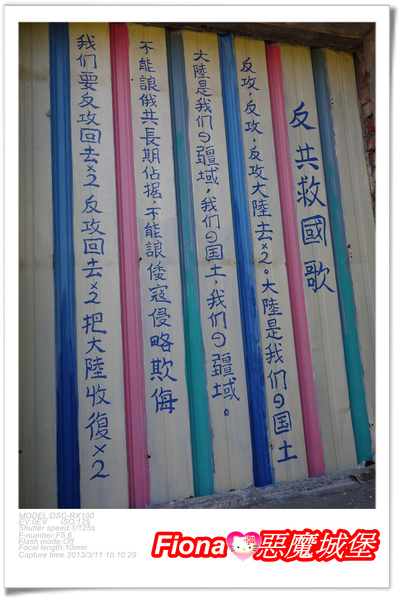 反共救國歌
反攻,反攻,反攻大陸去×2。大陸是我们の国土
大陸是我们の疆域,我们の国土,我们の疆域。
不能讓俄共長期佔据,不能讓倭寇侵略欺侮
我们要反攻回去×2 反攻回去×2 把大陸收復×2
MODEL:DSC-RX100
EV:0EV ISO:125
Shutter speed:1/125s
F-number:F5.6
Flash mode:Off
Focal length:10mm
Capture time:2013/3/11 10:10:29
Fiona惡魔城堡